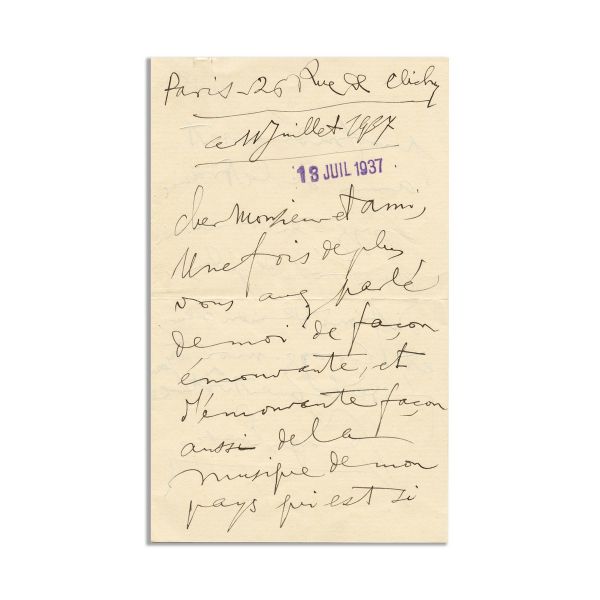 Paris - 26 Rue de Clichy
ce 11 Juillet 1937
13 JUIL 1937
Cher Monsieur et ami,
Une fois de plus
vous avez parlé
de moi de façon
émouvante, et
d'émouvante façon
aussi de la
musique de mon
pays qui est si